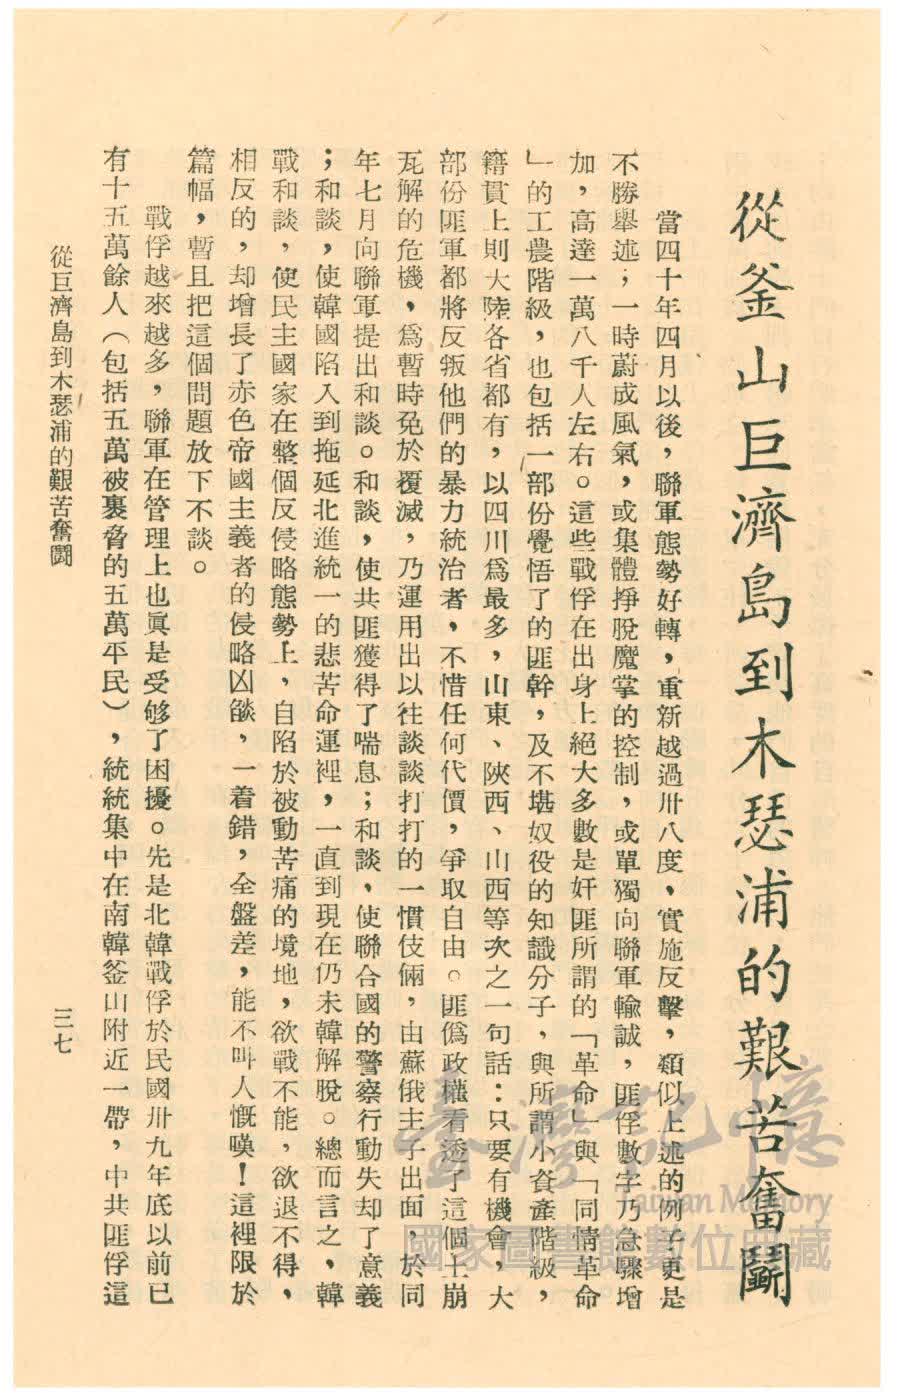 從釜山巨濟島到木瑟浦的艱苦奮鬪
當四十年四月以後，聯軍態勢好轉，重新越過卅八度，實施反擊，類似上述的例子更是
不勝舉述；一時蔚成風氣，或集體掙脫魔掌的控制，或單獨向聯軍輸誠，匪俘數字乃急驟增
加，高達一萬八千人左右。這些戰俘在出身上絕大多數是奸匪所謂的「革命」與「同情革命
」的工農階級，也包括一部份覺悟了的匪幹，及不堪奴役的知識分子，與所謂小資產階級，
籍貫上則大陸各省都有，以四川爲最多，山東、陝西、山西等次之一句話：只要有機會，大
部份匪軍都將反叛他們的暴力統治者，不惜任何代價，爭取自由。匪僞政權看透了這個土崩
瓦解的危機，爲暫時免於覆滅，乃運用出以往談談打打的一慣伎倆，由蘇俄主子出面，於同
年七月向聯軍提出和談。和談，使共匪獲得了喘息；和談，使聯合國的警察行動失却了意義
；和談，使韓國陷入到拖延北進統一的悲苦命運裡，一直到現在仍未韓解脫。總而言之，韓
戰和談，使民主國家在整個反侵略態勢上，自陷於被動苦痛的境地，欲戰不能，欲退不得，
相反的，却增長了赤色帝國主義者的侵略凶燄，一着錯，全盤差，能不叫人慨嘆！這裡限於
篇幅，暫且把這個問題放下不談。
戰俘越來越多，聯軍在管理上也眞是受够了困擾。先是北韓戰俘於民國卅九年底以前已
有十五萬餘人（包括五萬被裹脅的五萬平民），統統集中在南韓釜山附近一帶，中共匪俘這
從巨濟島到木瑟浦的艱苦奮鬪
三七
臺灣記憶
Taiwan Memory
國家圖書館數位典藏